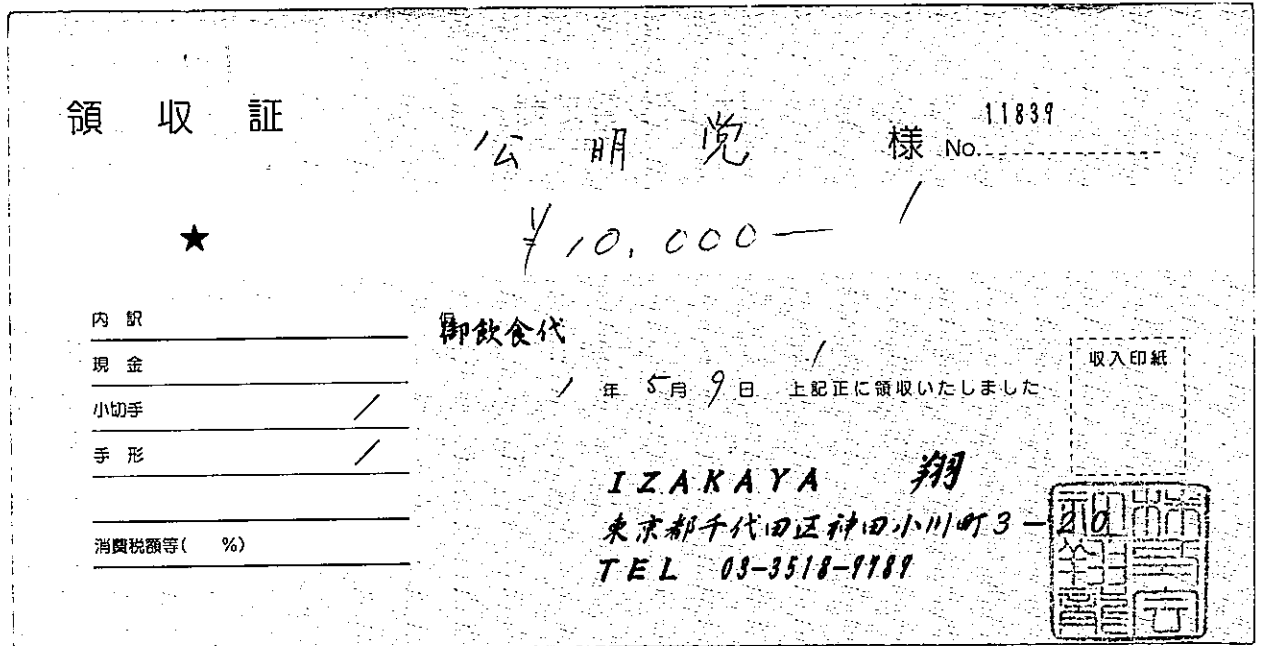 領収証 公明党 様 No. 11839
★ ¥10,000―
内訳
現金
小切手
手形
消費税額等( %)
御飲食代
1年5月9日 上記正に領収いたしました
収入印紙
IZAKAYA 翔
東京都千代田区神田小川町3-20
TEL 03-3518-9789